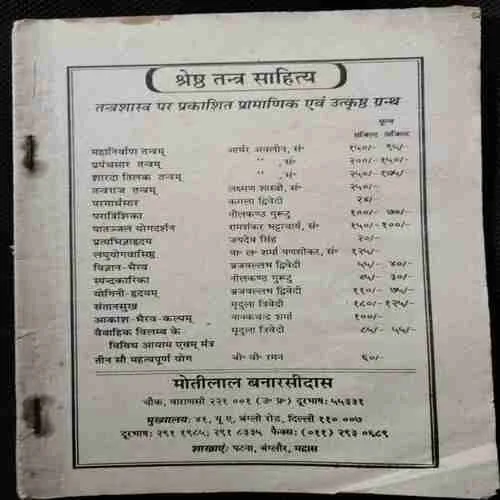 श्रेष्ठ तन्त्र साहित्य
तन्त्रशास्त्र पर प्रकाशित प्रामाणिक एवं उत्कृष्ठ ग्रन्थ
मूल्य
सजिल्द अजिल्द
महानिर्वाण तन्त्रम् आर्थर अवलोन, सं॰ १५०/- ९५/-
प्रपंचसार तन्त्रम् " , सं॰ २००/- १५०/-
शारदा तिलक तन्त्रम् " , सं॰ २५०/- १७५/-
तन्त्रराज तन्त्रम् लक्ष्मण शास्त्री, सं॰ २५०/-
परमार्थसार कमला द्विवेदी
परात्रिंशिका नीलकण्ठ गुरुटु १००/- ७०/-
पातञ्जल योगदर्शन रामशंकर भट्टाचार्य, सं॰ १५०/- १००/-
प्रत्यभिज्ञाहृदय जयदेव सिंह २०/-
लघुयोगवासिष्ठ वा॰ ल॰ शर्मा पणसीकर, सं॰ १२५/-
विज्ञान-भैरव ब्रजवल्लभ द्विवेदी ५५/- ४०/-
स्पन्दकारिका नीलकण्ठ गुरुटु ४५/- ३०/-
योगिनी-हृदयम् ब्रजवल्लभ द्विवेदी ११०/- ७५/-
संतानसुख मृदुला त्रिवेदी १८०/- १२५/-
आकाश-भैरव-कल्पम् नानकचन्द्र शर्मा १००/-
वैवाहिक विलम्ब के मृदुला त्रिवेदी ८५/- ५५/-
विविध आयाम एवम् मंत्र
तीन सौ महत्वपूर्ण योग बी॰ वी॰ रमन ६०/-
मोतीलाल बनारसीदास
चौक, वाराणसी २२१ ००१ (उ॰ प्र॰) दूरभाष: ५५३३१
मुख्यालय: ४१, यू.ए, बंग्लो रोड, दिल्ली ११० ००७
दूरभाष: २९१ १९८५; २९१ ८३३५ फैक्स: (०११) २९३ ०६८९
शाखाएं: पटना, बंग्लौर, मद्रास